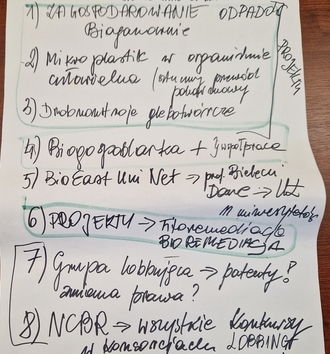 1) ZAGOSPODAROWANIE ODPADÓW
Biogazownie
2) Mikroplastik w organizmie
człowieka (sztuczny przewód
pokarmowy)
PROJEKTY
3) Drobnoustroje glebotwórcze
4) Biogospodarka + współpraca
5) BioEast Uni Net → prof. Bielecki
Dane →
11 uniwersytetów
6) PROJEKTY → Fitoremediacja
BIOREMEDIACJA
7) Grupa lobbująca → patenty?
zmiana prawa?
8) NCBR → wszystkie konkursy
w konsorcjach LOBBING